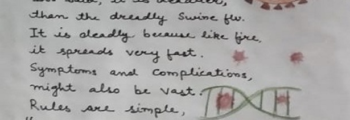 it is deadlier,
than the dreadly Swine flu.
It is deadly because like fire,
it spreads very fast.
Symptoms and Complications,
might also be vast.
Rules are simple,